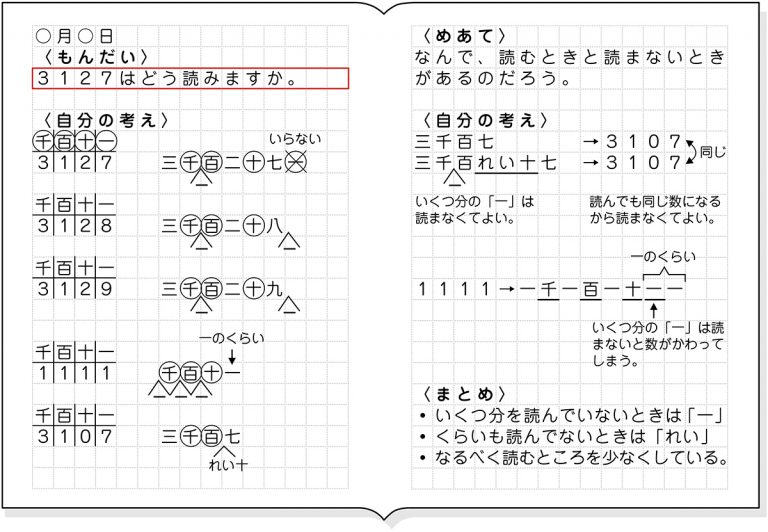 ○月○日
〈もんだい〉
3127はどう読みますか。
〈自分の考え〉
いらない
千百十一
3127 三千百二十七一
一
千百十一
3128 三千百二十八
一 一
千百十一
3129 三千百二十九
一 一
一のくらい
千百十一
1111 千百十一
一一一
千百十一
3107 三千百七
れい十
〈めあて〉
なんで、読むときと読まないとき
があるのだろう。
〈自分の考え〉
三千百七 →3107
三千百れい十七 →3107
同じ
一
いくつ分の「一」は
読まなくてよい。
読んでも同じ数になる
から読まなくてよい。
一のくらい
1111→一千一百一十一一
いくつ分の「一」は読
まないと数がかわって
しまう。
〈まとめ〉
・いくつ分を読んでいないときは「一」
・くらいも読んでないときは「れい」
・なるべく読むところを少なくしている。